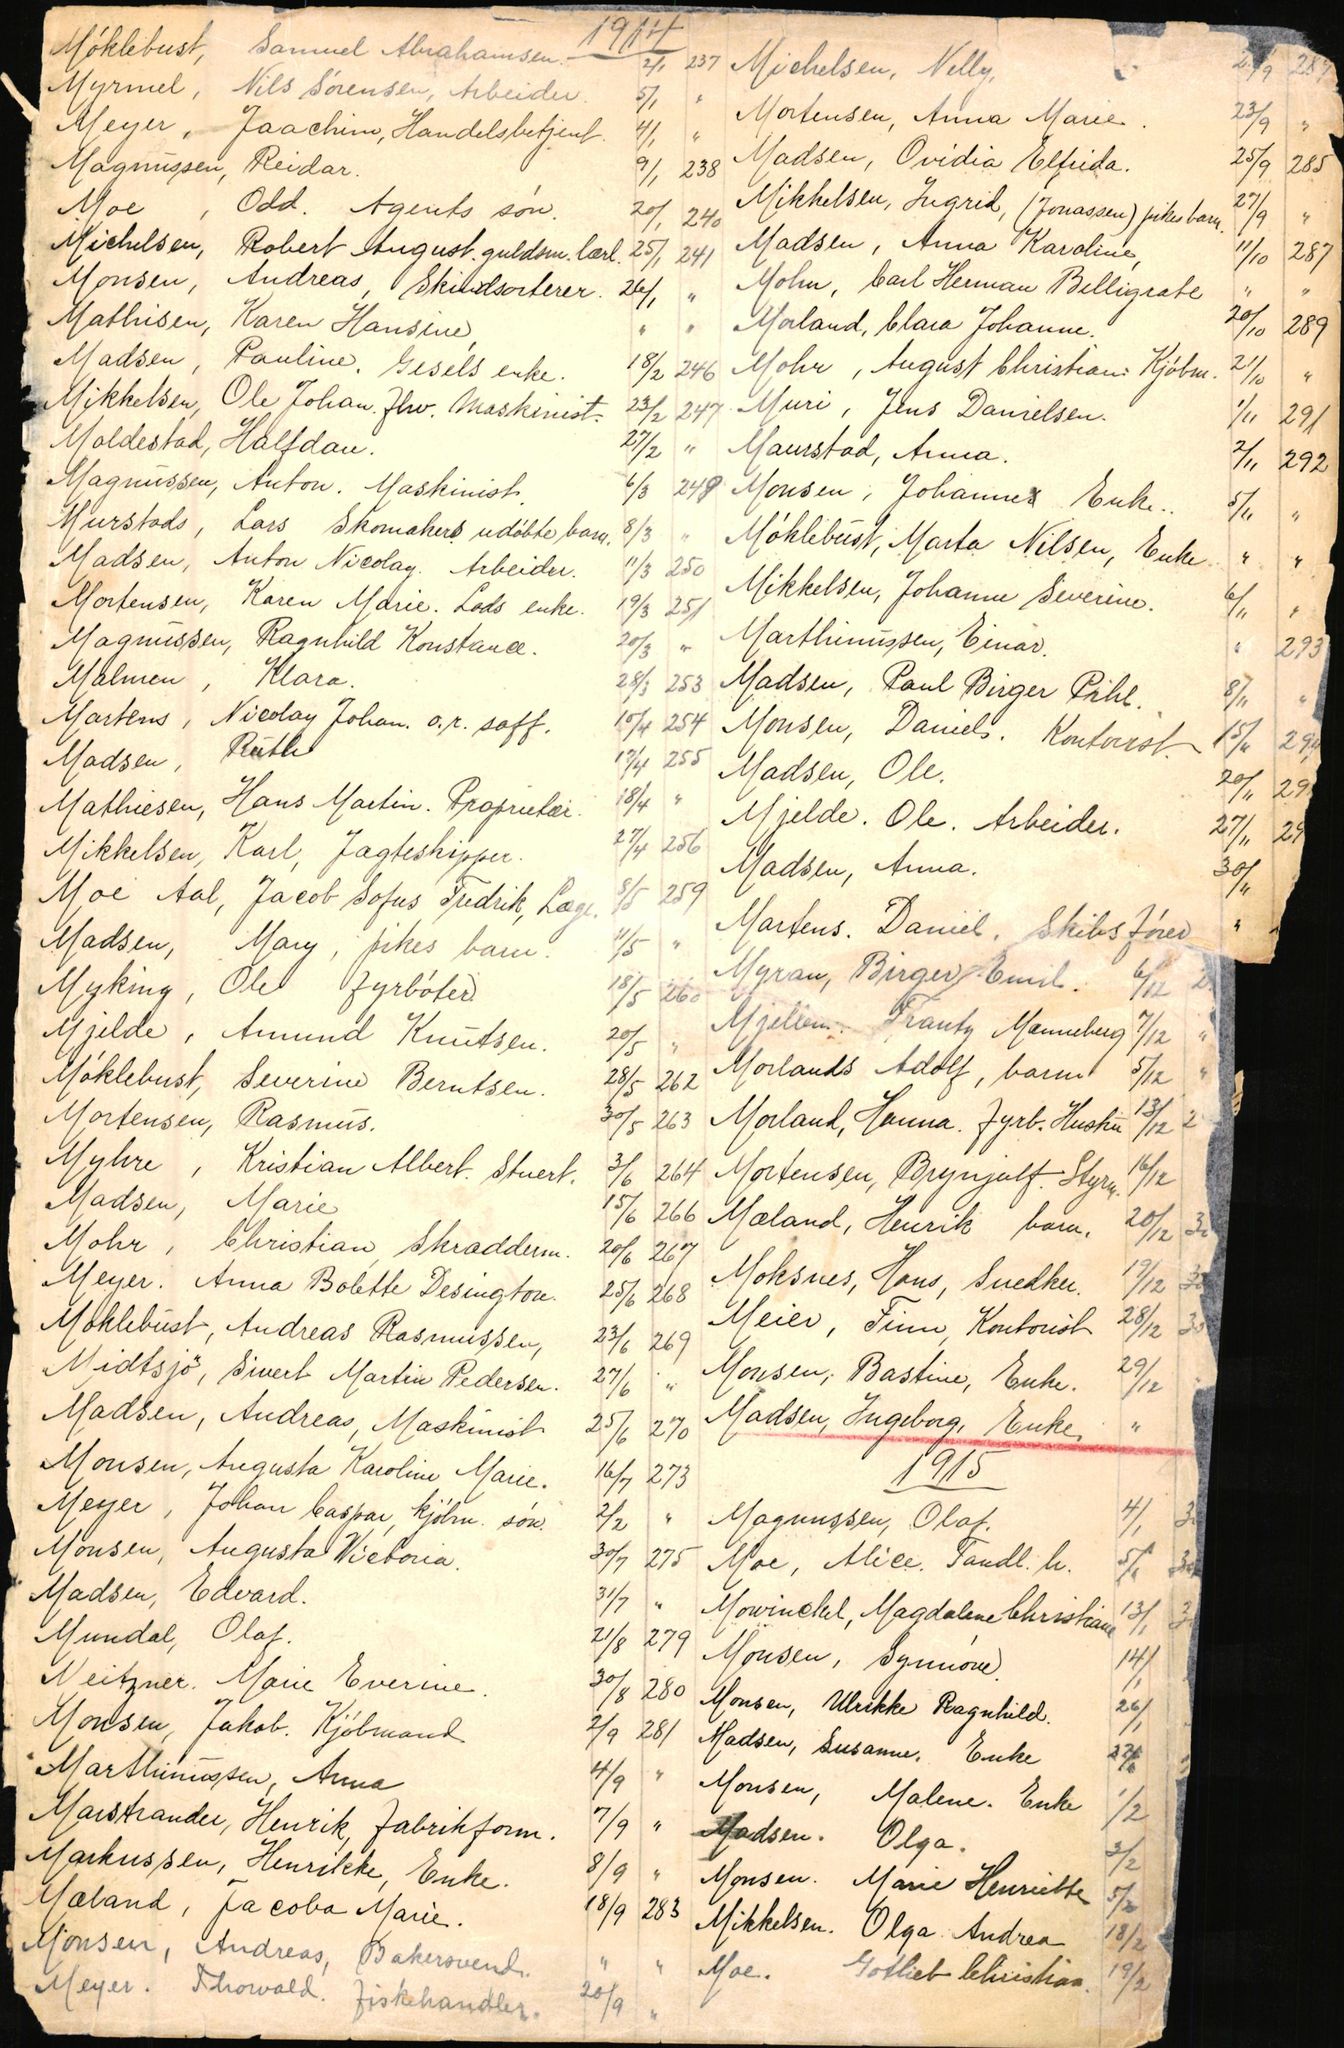 1914
Móklebust, Samuel Abrahamsen. 2/1 237
Myrmel, Nils Sørensen, Arbeider. 5/1 "
Meyer, Jaachim, Handelsbetjent. 4/1 "
Magnussen, Reidar. 9/1 238
Moe, Odd. Agents són. 20/1 240
Michelsen, Robert August. guldsm. lærl. 25/1 241
Monsen, Andreas, Skindsorterer. 26/1 "
Mathisen, Karen Hansine, " "
Madsen, Pauline. Gesels enke. 18/2 246
Mikkelsen, Ole Johan. fhv. Maskinist. 23/2 247
Moldestad, Halfdan. 27/2 "
Magnussen, Anton. Maskinist. 6/3 248
Murstads, Lars Skomakers udóbte barn. 8/3 "
Madsen, Anton Nicolay. Arbeider. 11/3 250
Mortensen, Karen Marie. Lods enke. 19/3 251
Magnussen, Ragnhild Konstance. 20/3 "
Malmen, Klara. 28/3 253
Martens, Nicolay Johan. o.r. saff. 10/4 254
Madsen, Ruth 17/4 255
Mathiesen, Hans Martin. Proprietær. 18/4 "
Mikkelsen, Karl, Jagteskipper. 27/4 256
Moe Aal, Jacob Sofus Fredrik, Læge. 8/5 259
Madsen, Mary, pikes barn. 11/5 "
Myking, Ole fyrbóter 18/5 260
Mjelde, Amund Knutsen. 20/5 "
Móklebust, Severine Berntsen. 28/5 262
Mortensen, Rasmus. 30/5 263
Myhre, Kristian Albert. Stuert. 3/6 264
Madsen, Marie 15/6 266
Mohr, Christian, Skradderm. 20/6 267
Meyer. Anna Bolette Desington. 25/6 268
Móklebust, Andreas Rasmussen, 23/6 269
Midtsjö, Sivert Martin Pedersen. 27/6 "
Madsen, Andreas, Maskinist 25/6 270
Monsen, Augusta Karoline Marie. 16/7 273
Meyer, Johan Caspar, kjóbm. són. 2/2 "
Monsen, Augusta Victoria. 30/7 275
Madsen, Edvard. 31/7 "
Mundal, Olaf. 21/8 279
Meitzner. Marie Everine. 30/8 280
Monsen, Jakob. Kjóbmand 2/9 281
Marthinussen, Anna 4/9 "
Marstrander, Henrik, fabrikform. 7/9 "
Markussen, Henrikke, Enke. 8/9 "
Mæland, Jacoba Marie. 18/9 283
Monsen, Andreas, Bakersvend. " "
Meyer. Thorvald. fiskehandler. 20/9 "
Michelsen, Nelly, 21/9 287
Mortensen, Anna Marie. 23/9 "
Madsen, Ovidia Elfrida. 25/9 285
Mikkelsen, Ingrid, (Jonassen) pikes barn. 27/9 "
Madsen, Anna Karoline, 11/10 287
Mohn, Carl Herman Belligrate " "
Morland, Clara Johanne. 20/10 289
Mohr, August Christian. Kjóbm. 21/10 "
Muri, Jens Danielsen. 1/11 291
Maurstad, Anna. 2/11 292
Monsen, Johannes Enke. 5/11 "
Móklebust, Marta Nilsen, Enke. " "
Mikkelsen, Johanne Severine. 6/11 "
Marthinussen, Einar. " 293
Madsen, Paul Birger Pihl. 8/11 "
Monsen, Daniel. Kontorist. 15/11 294
Madsen, Ole. 20/11 29
Mjelde. Ole. Arbeider. 27/11 29
Madsen, Anna. 30/11
Martens. Daniel. Skibsfórer "
Myran, Birger Emil. 6/12 2
Mjellem. Frantz Manneberg 7/12 "
Morlands Adolf, barn 5/12 "
Morland, Hanna. fyrb. Hustru 13/12 2
Mortensen, Brynjulf. Styrm. 16/12
Mæland, Henrik barn. 20/12 3
Moksnes, Hans, Snedker. 19/12 30
Meier, Finn, Kontorist 28/12 30
Monsen, Bastine, Enke. 29/12
Madsen, Ingeborg, Enke, "
1915
Magnussen, Olaf. 4/1 3
Moe, Alice. Tandl. h. 5/1 3
Mowinckel, Magdalene Christiane 13/1 3
Monsen, Synnóve. 14/1
Monsen, Ulrikke Ragnhild. 26/1
Madsen, Susanne. Enke
Monsen, Malene. Enke 1/2
Madsen. Olga. 3/2
Monsen. Marie Henriette 5/2
Mikkelsen. Olga Andrea 18/2
Moe. Gotlieb Christian. 19/2